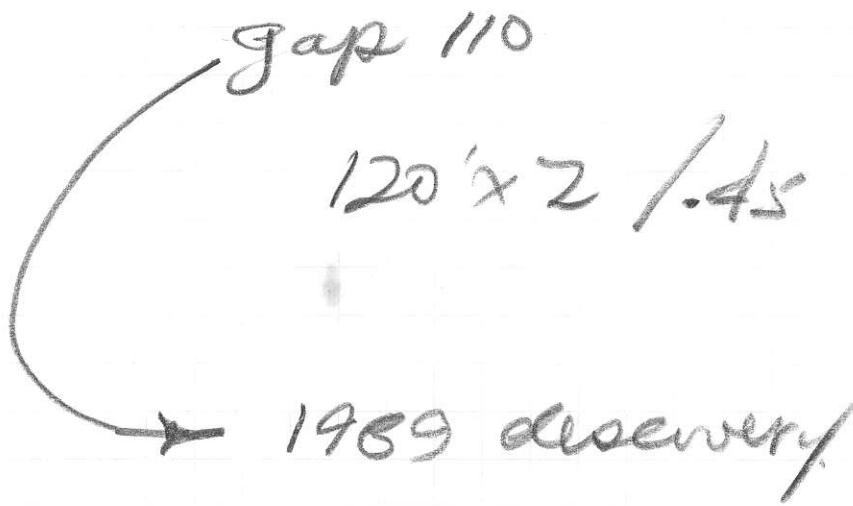 gap 110
120' x 2 /.45
1989 discovery